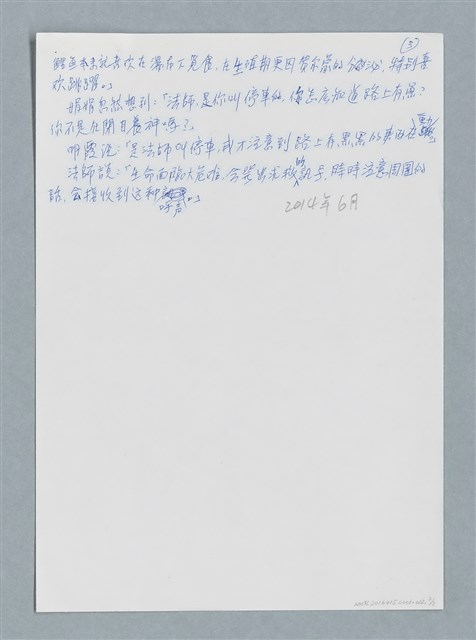 ③
鱷魚本來就喜欢在瀑布下覓食，在生殖期更因荷尔蒙的分泌，特别喜
欢跳躍。」
娟娟忽然想到：「法師，是你叫停車的，你怎麼知道路上有魚？
你不是在閉目養神嗎？」
明霞说：「是法師叫停車，我才注意到路上有黑黑的東西在動
法師說：「生命面臨大危难，会發出求救的訊号，時時注意周圍的
話，会接收到这种呼声。」
2014年6月